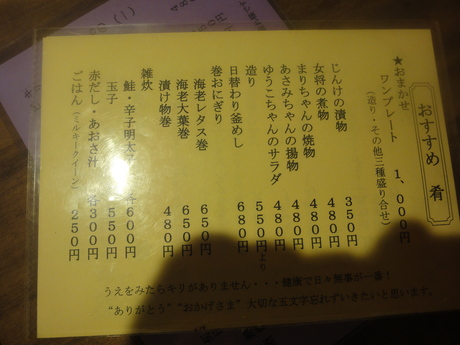 おすすめ 肴
★おまかせ
ワンプレート 1,000円
(造り・その他三種盛り合せ)
じんけの漬物 350円
女将の煮物 480円
まりちゃんの焼物 480円
あさみちゃんの揚物 480円
ゆうこちゃんのサラダ 480円
造り 550円より
日替わり釜めし 680円
巻おにぎり
海老レタス巻 650円
海老大葉巻 650円
漬け物巻 480円
雑炊
鮭・辛子明太子 各600円
玉子 550円
赤だし・あおさ汁 各300円
ごはん(ミルキークイーン) 250円
うえをみたらキリがありません・・・健康で日々無事が一番!
"ありがとう" "おかげさま" 大切な五文字忘れずいきたいと思います。